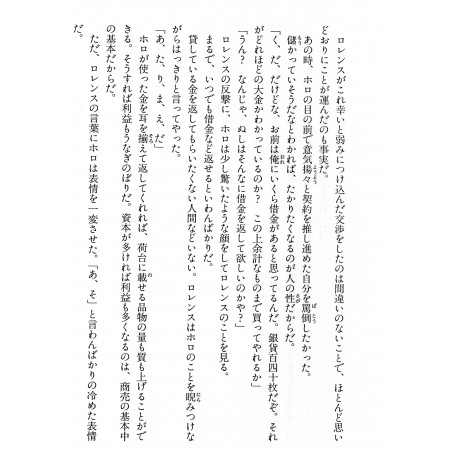 ロレンスがこれ幸いと弱みにつけ込んだ交渉をしたのは間違いのないことで、ほとんど思い
どおりにことが運んだのも事実だ。
あの時、ホロの目の前で意気揚々と契約を推し進めた自分を罵倒したかった。
儲かっていそうだなとわかれば、たかりたくなるのが人の性だからだ。
「く、だ、だけどな、お前は俺にいくら借金があると思ってるんだ。銀貨百四十枚だぞ。それ
がどれほどの大金かわかっているのか？　この上余計なものまで買ってやれるか」
「うん？　なんじゃ、ぬしはそんなに借金を返して欲しいのかや？」
ロレンスの反撃に、ホロは少し驚いたような顔をしてロレンスのことを見る。
まるで、いつでも借金など返せるといわんばかりだ。
貸している金を返してもらいたくない人間などいない。ロレンスはホロのことを睨みつけな
がらはっきりと言ってやった。
「あ、た、り、ま、え、だ」
ホロが使った金を耳を揃えて返してくれれば、荷台に載せる品物の量も質も上げることがで
きる。そうすれば利益もうなぎのぼりだ。資本が多ければ利益も多くなるのは、商売の基本中
の基本だからだ。
ただ、ロレンスの言葉にホロは表情を一変させた。「あ、そ」と言わんばかりの冷めた表情
だ。